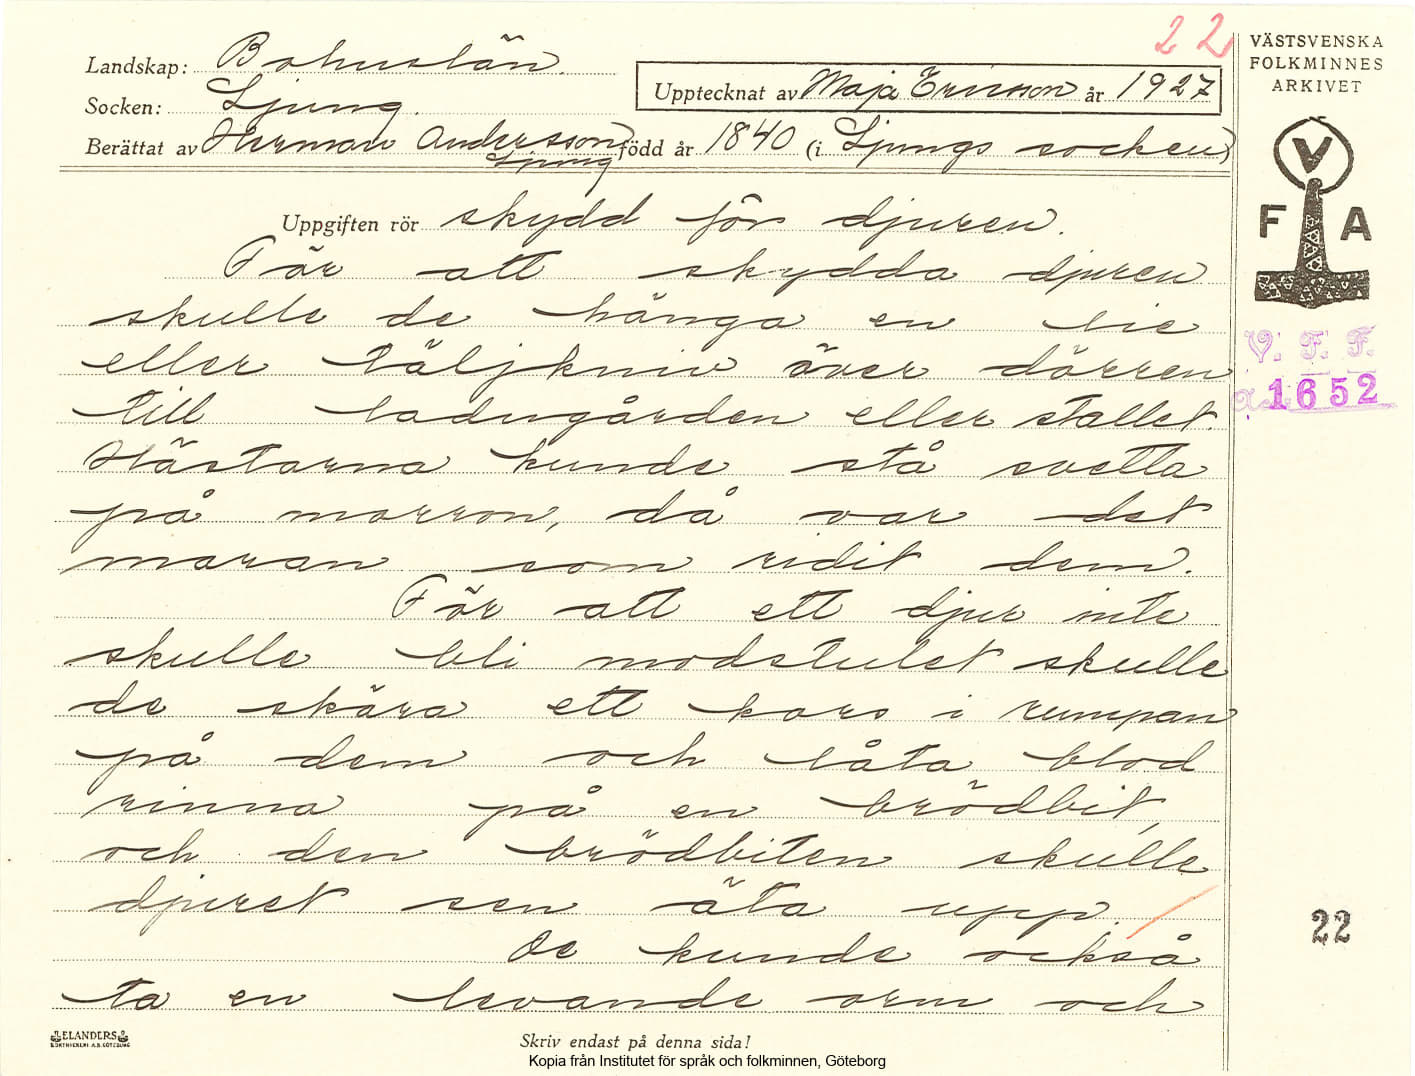 22
VÄSTSVENSKA
FOLKMINNES
ARKIVET
Landskap: Bohuslän.
Socken: Ljung.
Upptecknat av Maja Ericsson år 1927
Berättat av Herman Andersson född år 1840 (i Ljungs socken)
Ljung
V
F A
V. F. F.
1652
Uppgiften rör skydd för djuren.
För att skydda djuren
skulle de hänga en lie
eller täljkniv över dörren
till ladugården eller stallet.
Hästarna kunde stå svetta
på morron, då var det
maran som ridit dem.
För att ett djur inte
skulle bli modstulet skulle
de skära ett kors i rumpan
på dem och låta blod
rinna på en brödbit,
och den brödbiten skulle
djuret sen äta upp.
De kunde också
ta en levande orm och
22
ELANDERS
BOKTRYCKERI A.B. GÖTEBORG
Skriv endast på denna sida!
Kopia från Institutet för språk och folkminnen, Göteborg